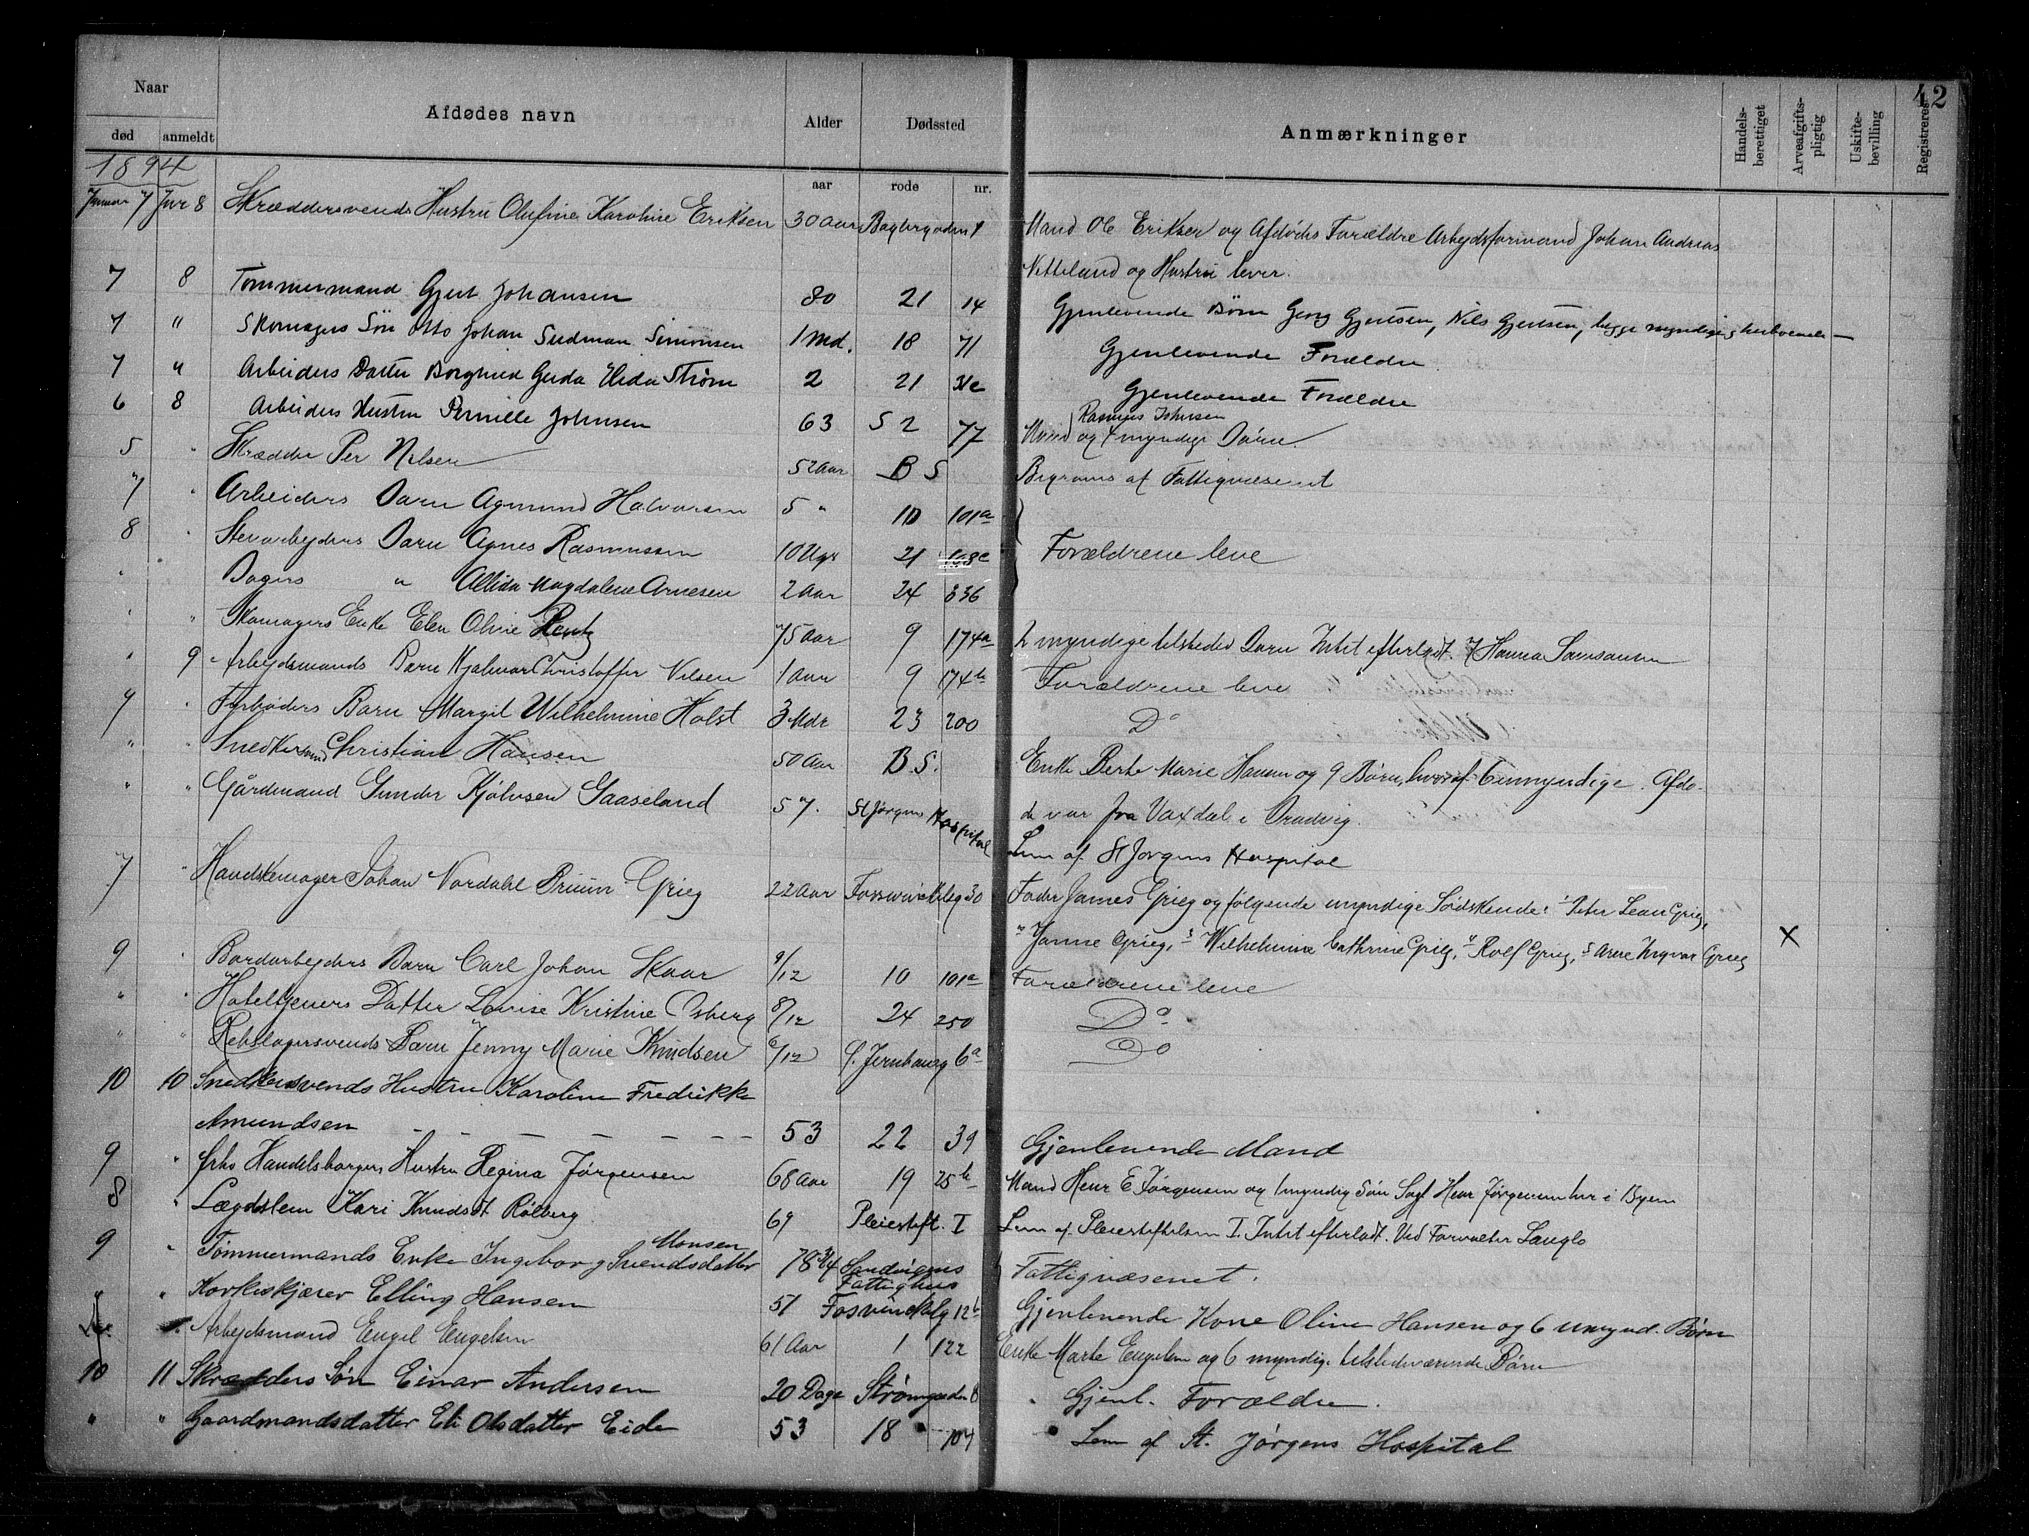 42
Naar
død anmeldt Afdødes navn Alder Dødssted Anmærkninger Handels-berettiget Arveafgifts-pligtig Uskifte-bevilling Registreres
aar rode nr.
1894
Januar 7 Jnr 8 Skræddersvends Hustru Olufine Karoline Eriksen 30 Aar Mand Ole Eriksen og Afdødes Forældre Arbejdsformand Johan Andreas
Netteland og Hustru lever.
7 8 Tømmermand Gjert Johansen 80 21 14 Gjenlevende Børn Georg Gjertsen, Nils Gjertsen, begge myndige
7 " Skomagers Søn Otto Johan Sudman Simonsen 1 Md. 18 71 Gjenlevende Forældre
7 " Arbeiders Datter Borghild Gerda Hida Strøm 2 21 31c Gjenlevende Forældre
6 8 Arbeiders Hustru Pernille Johnsen 63 S 2 77 Mand Rasmus Johnsen og 4 myndige Børn
5 " Skrædder Per Nilsen 52 Aar B S Begraves af Fattigvæsenet
7 " Arbeiders Barn Agmund Halvorsen 5 " 10 101a
8 " Barn Agnes Rasmussen 10 Uger 21 108c Forældrene leve
" Bagers " Allida Magdalene Arnesen 2 Aar 24 336
" " Skomagers Enke Elen Oline Rentz 75 Aar 9 174a 2 myndige tilstedev. Børn Intet efterladt. Hanna Samsonsen
" 9 Arbejdsmands Barn Hjalmar Christoffer Nilsen 1 Aar 9 174b Forældrene leve
7 " Fyrbøders Barn Margit Wilhelmine Holst 3 Mdr 23 200 Do
" " Snedkersvend Christian Hansen 50 Aar B.S. Enke Berte Marie Hansen og 9 Børn, hvoraf 6 umyndige. Afdø-
" " Gårdmand Gunder Kjølvsen Gaaseland 57. St Jørgens Hospital de var fra Vaxdal i Bruvig.
Lem af St Jørgens Hospital
7 " Handskemager Johan Nordahl Bruun Grieg 22 Aar Fosswinckelsg 30 Fader James Grieg og følgende myndige Sødskende: 1 Peter Lexau Grieg,
2 Janne Grieg, 3 Wilhelmine Cathrine Grieg, 4 Rolf Grieg, 5 Arne Ingvar Grieg X
9 " Bordarbejders Barn Carl Johan Skaar 9/12 10 101a Forældrene leve
" " Hoteltjeners Datter Lovise Kristine Osberg 8/12 24 250 Do
" " Rebslagersvends Barn Jenny Marie Knudsen 6/12 S. Jernbaneg 6a Do
10 10 Snedkersvends Hustru Karoline Fredrikke
Amundsen - - - - - - - 53 22 39 Gjenlevende Mand
9 " fhv Handelsborgers Hustru Regina Jørgensen 68 Aar 19 25b Mand Henr E Jørgensen og 1 myndig Søn Sagf Henr Jørgensen her i Byen
8 " Lægdslem Kari Knudsdt Rolberg 69 Pleiestift. I Lem af Pleiestiftelsen I. Intet efterladt. Ved Forvalter Langlo
9 " Tømmermands Enke Ingeborg Svendsdatter Monsen 78 3/4 Sandvigens Fattighus Fattigvæsenet.
" " Korkeskjærer Elling Hansen 51 Fosvinckelsg 12b Gjenlevende Kone Oline Hansen og 6 umynd. Børn
" Arbejdsmand Engel Engelsen 61 Aar 1 122 Enke Marte Engelsen og 6 myndige tilstedeværende Børn
10 11 Skrædders Søn Einar Andersen 20 Dage Strømgaden 8 Gjenl. Forældre.
" " Gaardmandsdatter Eli Olsdatter Eide 53 18 107 Lem af St. Jørgens Hospital